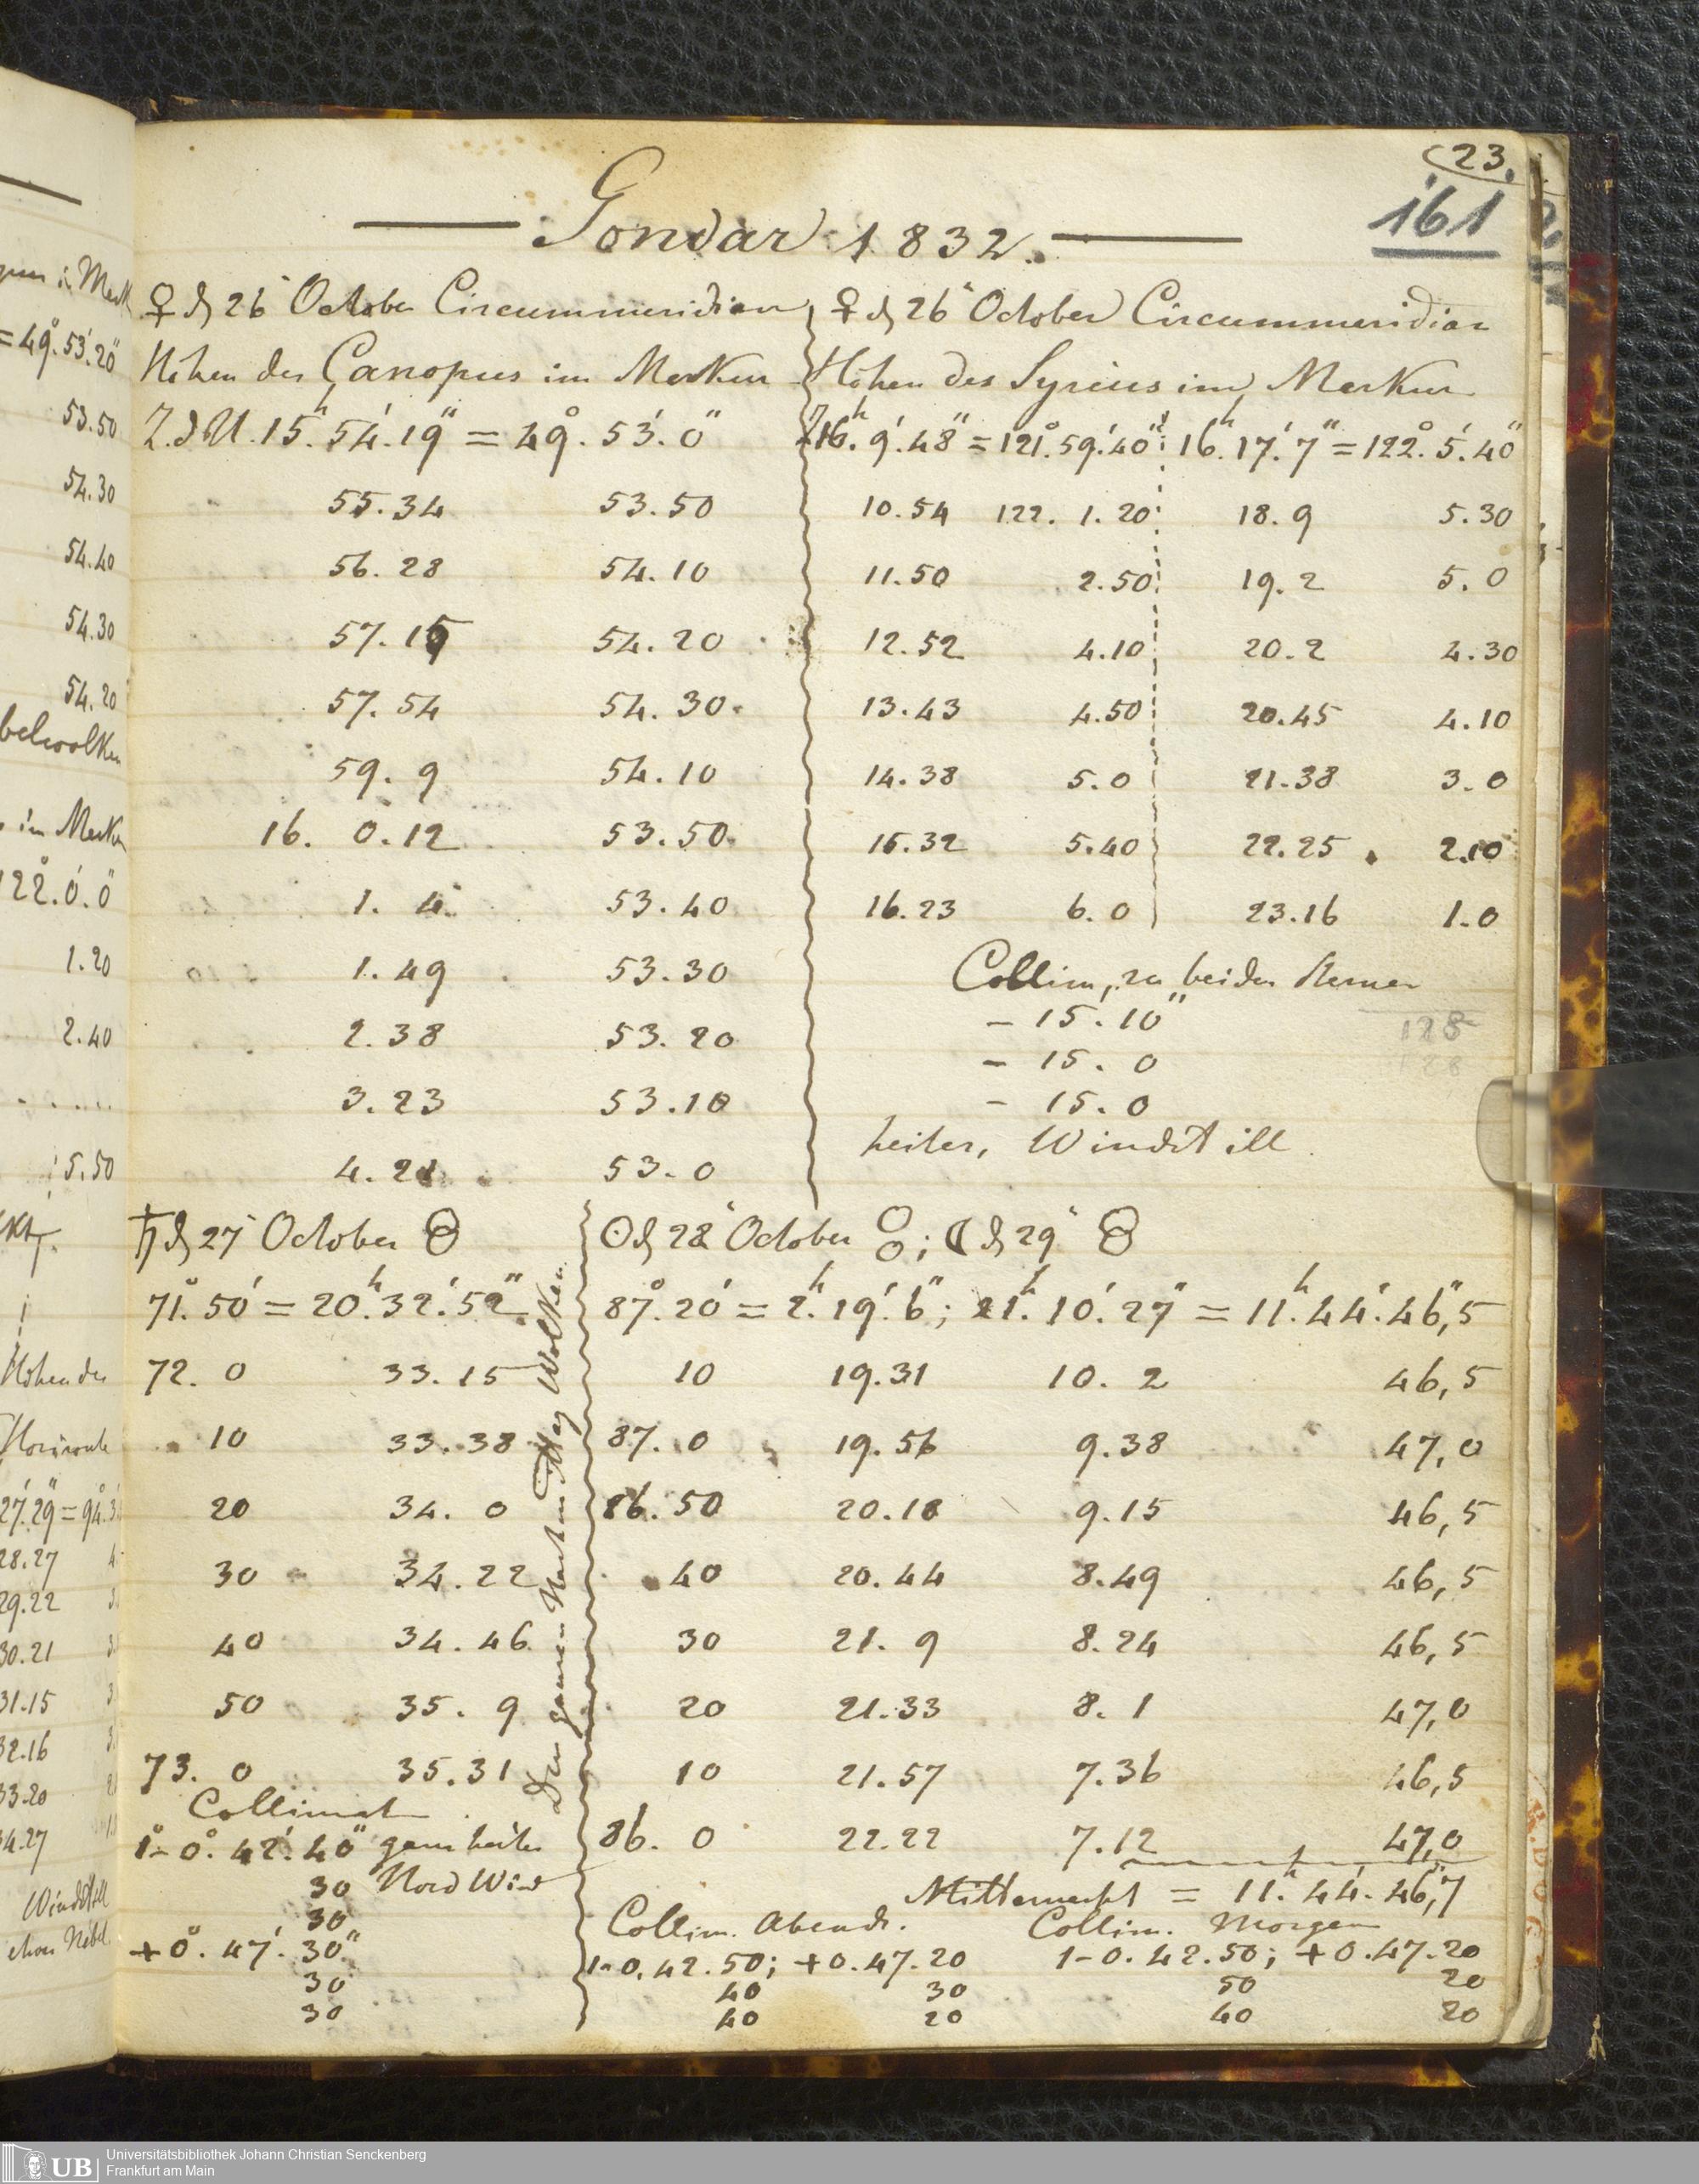 (23.
161
Gondar 1832.
♀ d 26 October Circummeridian
Höhen des Canopus im Merkur
Z.d U. 15.h 54.' 19" = 49.° 53.' 0"
55.34 53.50
56.28 54.10
57.15 54.20
57.54 54.30
59.9 54.10
16. 0.12 53.50
1.4 53.40
1.49 53.30
2.38 53.20
3.23 53.10
4.21 53.0
♀ d 26 October Circummeridian
Höhen des Syrius im Merkur
16.h 9.' 48" = 121.° 59.' 40" 16.h 17.' 7" = 122.° 5.' 40"
10.54 122. 1.20 18.9 5.30
11.50 2.50 19.2 5.0
12.52 4.10 20.2 4.30
13.43 4.50 20.45 4.10
14.38 5.0 21.38 3.0
15.32 5.40 22.25 2.10
16.23 6.0 23.16 1.0
Collim, zu beiden Sternen
– 15.10"
– 15.0
– 15.0
128
128
heiter, Windstill
♄ d 27 October
71.° 50' = 20.h 32.' 52"
72. 0 33.15
10 33.38
20 34. 0
30 34.22
40 34.46
50 35. 9
73. 0 35.31
Collimat
1 – 0.° 42.' 40" ganz heiter
30 Nord Wind
30
+ 0.° 47.' 30"
30
30
Den ganzen Nachmittag Wolken
☉ d 28 October ; ☾ d 29
87.° 20' = 2.h 19.' 6"; 21.h 10.' 27" = 11.h 44.' 46,"5
10 19.31 10.2 46,5
87. 0 19.56 9.38 47,0
86.50 20.18 9.15 46,5
40 20.44 8.49 46,5
30 21. 9 8.24 46,5
20 21.33 8. 1 47,0
10 21.57 7.36 46,5
86. 0 22.22 7.12 47,0
Mitternacht = 11.h 44.' 46,"7
Collim. Abends. Collim. Morgen
1–0.42.50; +0.47.20 1–0.42.50; +0.47.20
40 30 50 20
40 20 40 20
= 49.° 53.' 20"
53.50
54.30
54.40
54.30
54.20
bewolken
im Merkur
122.° 0.' 0"
1.20
2.40
. . . . .
5.50
Höhen des
Horizonte
27.' 29" =
28.27
29.22
30.21
31.15
32.16
33.20
34.27
Windstill
UB
Universitätsbibliothek Johann Christian Senckenberg
Frankfurt am Main